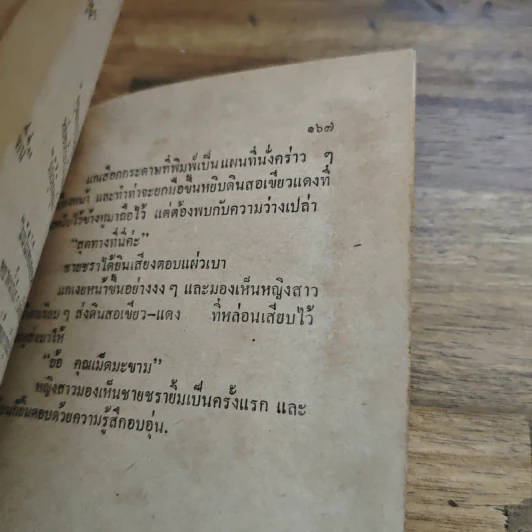 ๑๖๗
แกเลือกกระดาษที่พิมพ์เป็นแผนที่นั่งคร่าว ๆ
หน้า และทำท่าจะยกมือขึ้นหยิบดินสอเขียวแดงที่
ไว้ข้างหูมาถือไว้ แต่ต้องพบกับความว่างเปล่า
"สุดทางที่นี่ค่ะ"
ชายชราได้ยินเสียงตอบแผ่วเบา
แกเงยหน้าขึ้นอย่างงง ๆ และมองเห็นหญิงสาว
ๆ ส่งดินสอเขียว-แดง ที่หล่อนเสียบไว้
ให้
"อ้อ คุณเม็ดมะขาม"
หญิงสาวมองเห็นชายชรายิ้มเป็นครั้งแรก และ
ยิ้มตอบด้วยความรู้สึกอบอุ่น.